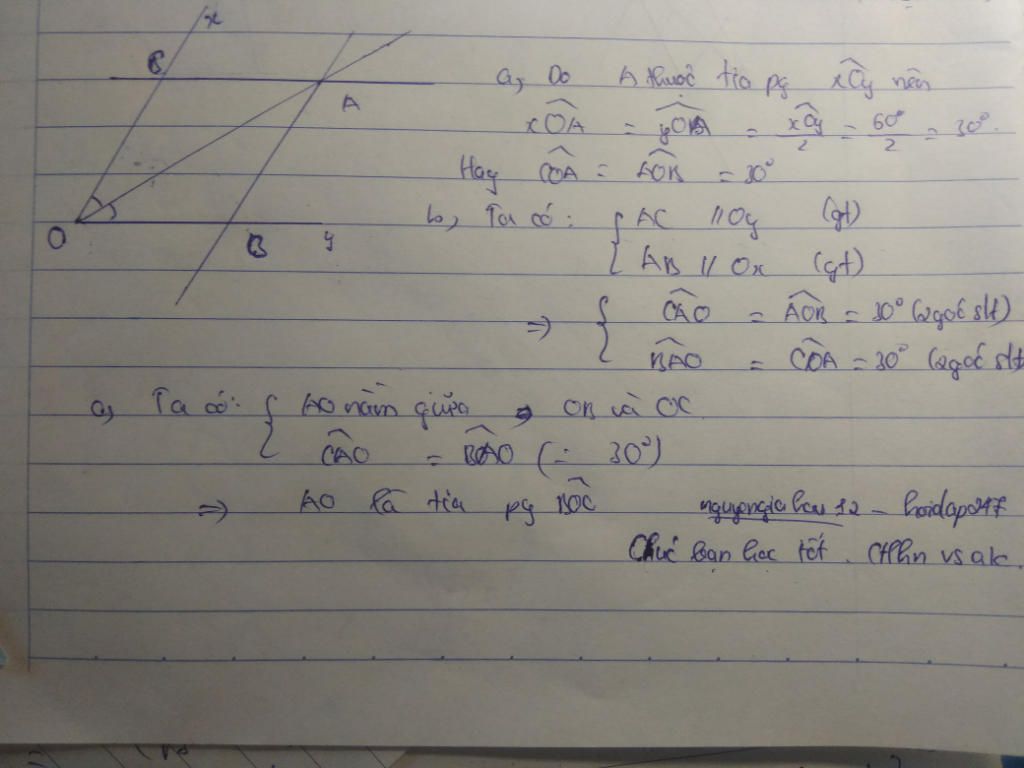 x
C
A
O
B
y
a, Do A thuộc tia pg xOy nên
xOA = yOA = xOy/2 = 60°/2 = 30°.
Hay COA = AOB = 30°
b, Ta có: { AC // Oy (gt)
AB // Ox (gt)
=> { CAO = AOB = 30° (2 góc slt)
BAO = COA = 30° (2 góc slt
c, Ta có: { AO nằm giữa OB và OC
CAO = BAO (= 30°)
=> AO là tia pg BOC
nguyengiahuu12 - hoidap247
Chúc bạn học tốt. Ctlhn vs ak.